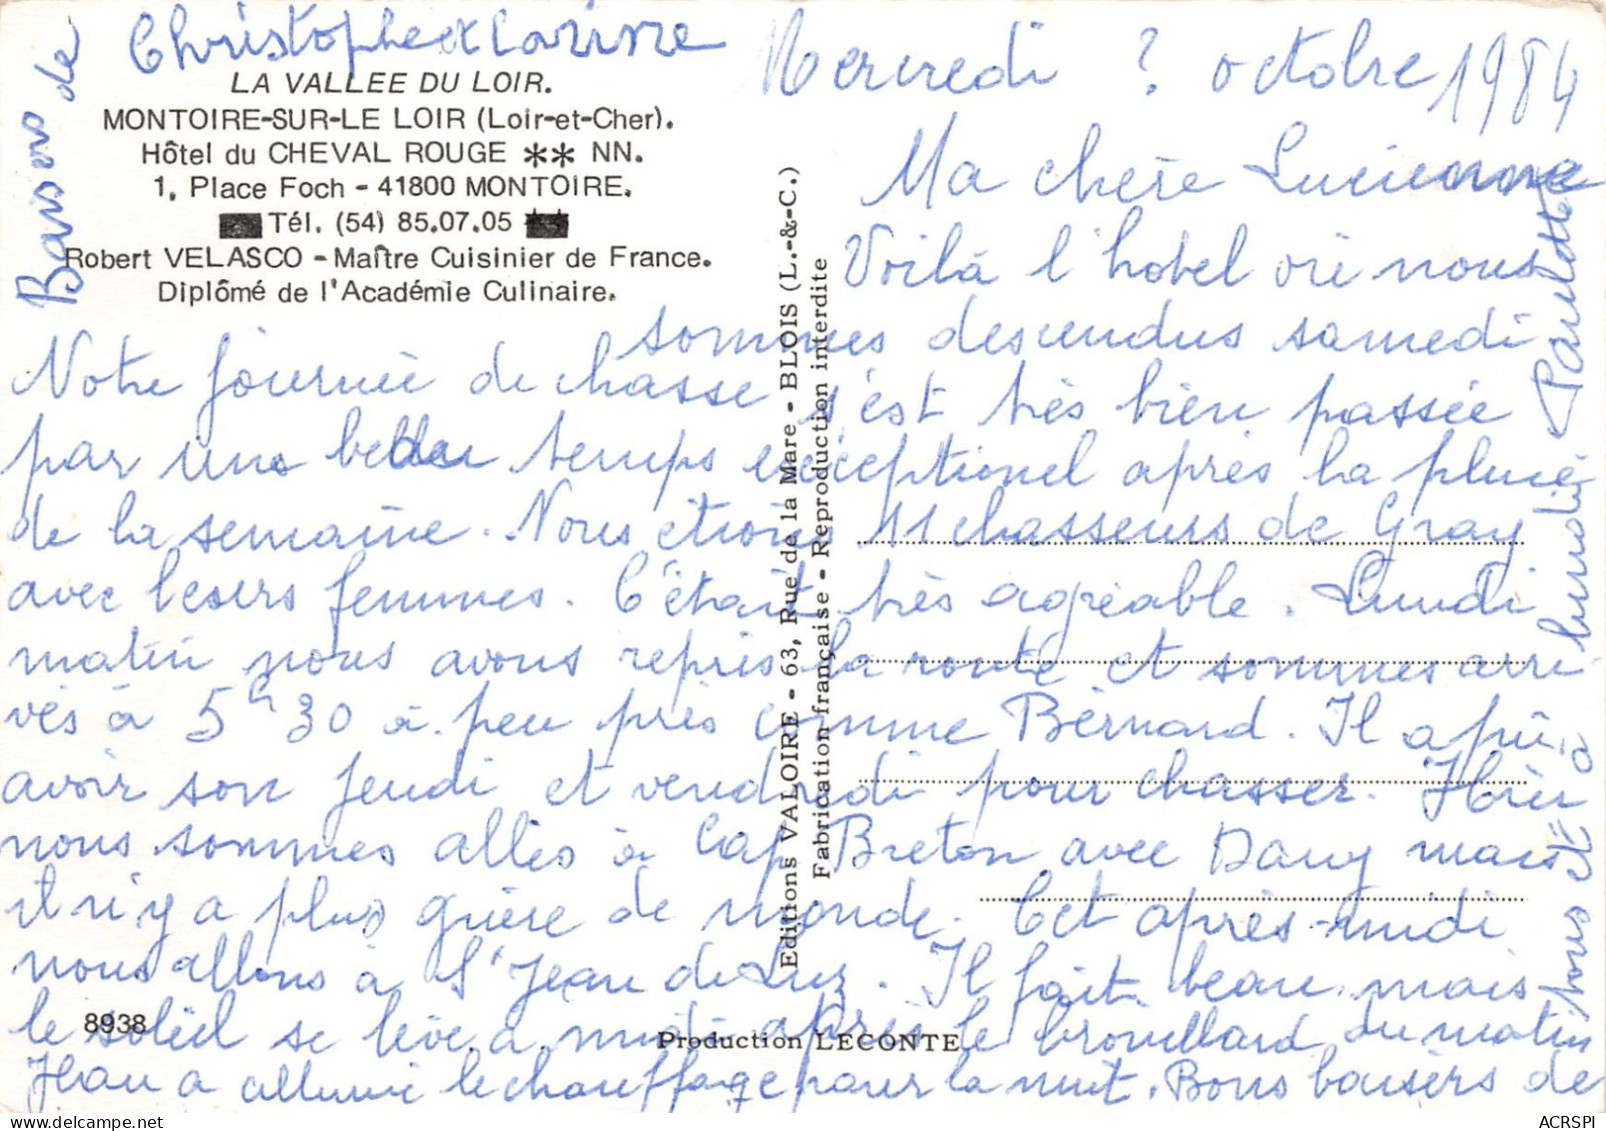 Baisers de
Christophe et Carine
LA VALLEE DU LOIR.
MONTOIRE-SUR-LE LOIR (Loir-et-Cher).
Hôtel du CHEVAL ROUGE ** NN.
1, Place Foch - 41800 MONTOIRE.
Tél. (54) 85.07.05
Robert VELASCO - Maître Cuisinier de France.
Diplômé de l'Académie Culinaire.
Mercredi ? octobre 1984
Ma chère Lucienne
Voilà l'hotel où nous
sommes descendus samedi
Notre journée de chasse s'est très bien passée
par une belle temps exceptionel après la pluie
de la semaine. Nous étions 11 chasseurs de Gray
avec leurs femmes. C'était très agréable. Lundi
matin nous avons repris la route et sommes arri-
vés à 5h30 à peu près comme Bernard. Il a pu
avoir son jeudi et vendredi pour chasser. Hier
nous sommes allés à Cap Breton avec Dany mais
il n'y a plus guère de monde. Cet après-midi
nous allons à St Jean de Luz. Il fait beau mais
le soleil se lève à midi après le brouillard du matin
Jean a allumé le chauffage pour la nuit. Bons baisers de
nous et à lundi Paulette
Editions VALOIRE - 63, Rue de la Mare - BLOIS (L.-&-C.)
Fabrication française - Reproduction interdite
8938
Production LECONTE
ACRSPI